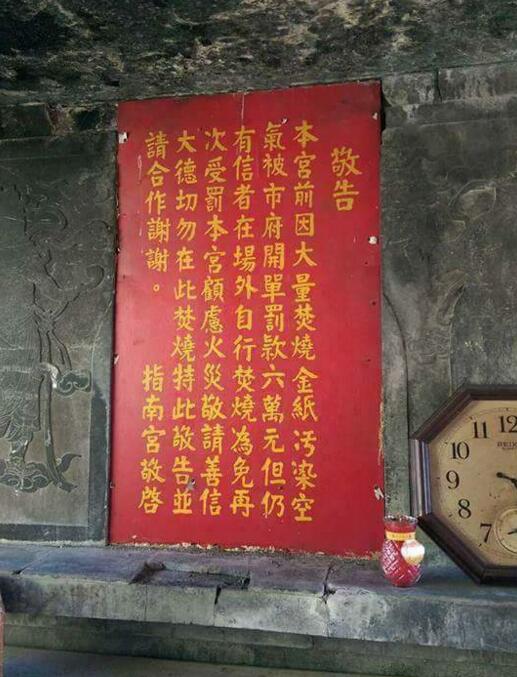 敬告
本宮前因大量焚燒金紙污染空
氣被市府開單罰款六萬元但仍
有信者在場外自行焚燒為免再
次受罰本宮顧慮火災敬請善信
大德切勿在此焚燒特此敬告並
請合作謝謝。 指南宮敬啓
11 12
10
9
8
7
6
SEIKO